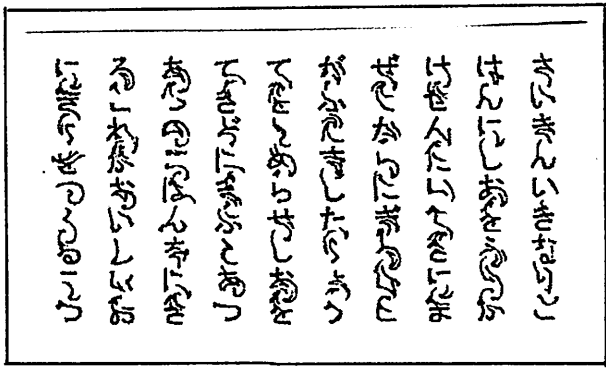 さいきんいきなりご
はんにしおをふりか
けぜんたいてきにま
ぜてからにぎるひと
がふえました
てをしめらせしおを
てきどにまぶしあつ
あつのごはんをにぎ
るこれがおいしいお
にぎりをつくるこつ